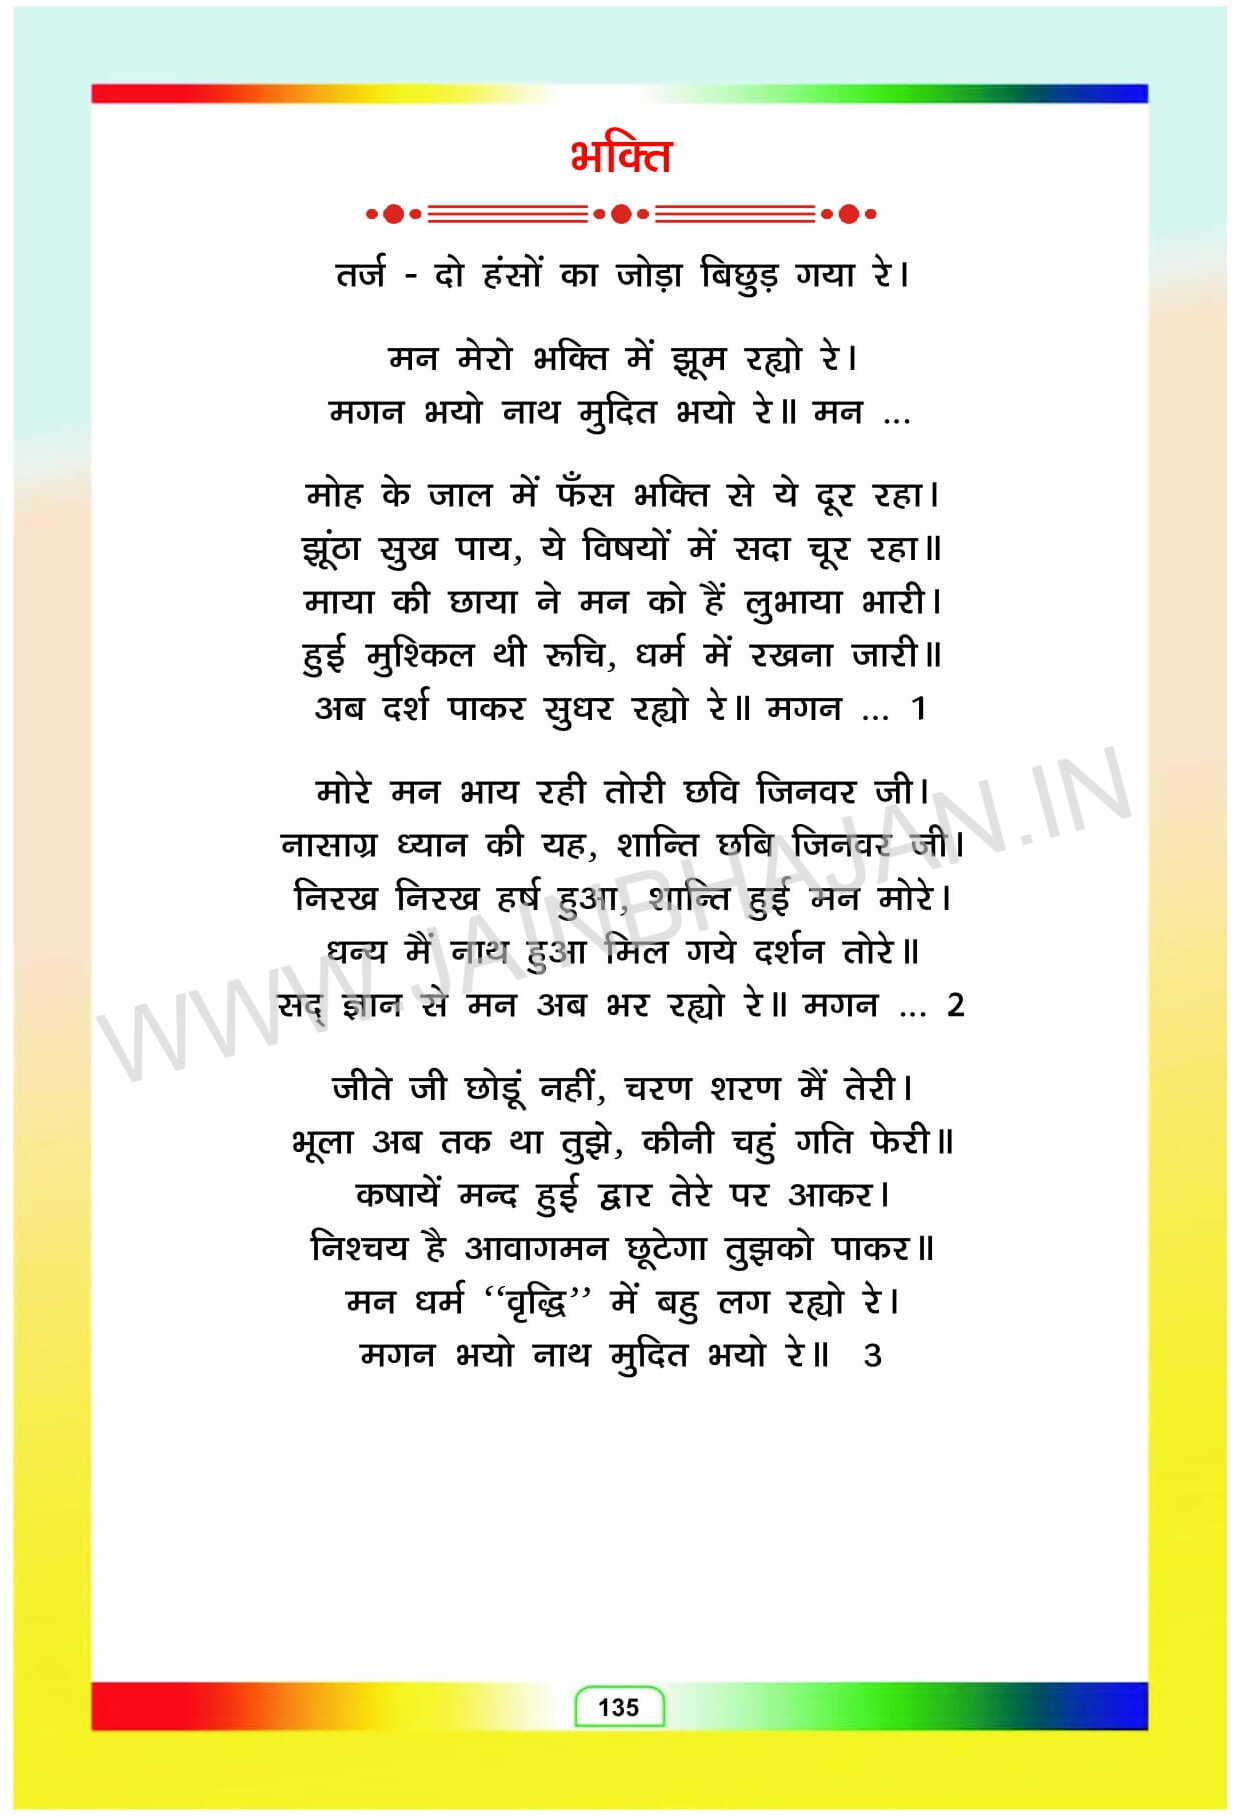 भक्ति
तर्ज - दो हंसों का जोड़ा बिछुड़ गया रे।
मन मेरो भक्ति में झूम रह्यो रे।
मगन भयो नाथ मुदित भयो रे॥ मन ...
मोह के जाल में फँस भक्ति से ये दूर रहा।
झूंठा सुख पाय, ये विषयों में सदा चूर रहा॥
माया की छाया ने मन को हैं लुभाया भारी।
हुई मुश्किल थी रूचि, धर्म में रखना जारी॥
अब दर्श पाकर सुधर रह्यो रे॥ मगन ... 1
मोरे मन भाय रही तोरी छवि जिनवर जी।
नासाग्र ध्यान की यह, शान्ति छबि जिनवर जी।
निरख निरख हर्ष हुआ, शान्ति हुई मन मोरे।
धन्य मैं नाथ हुआ मिल गये दर्शन तोरे॥
सद् ज्ञान से मन अब भर रह्यो रे॥ मगन ... 2
जीते जी छोडूं नहीं, चरण शरण मैं तेरी।
भूला अब तक था तुझे, कीनी चहुं गति फेरी॥
कषायें मन्द हुई द्वार तेरे पर आकर।
निश्चय है आवागमन छूटेगा तुझको पाकर॥
मन धर्म ‘‘वृद्धि’’ में बहु लग रह्यो रे।
मगन भयो नाथ मुदित भयो रे॥ 3
WWW.JAINBHAJAN.IN
135